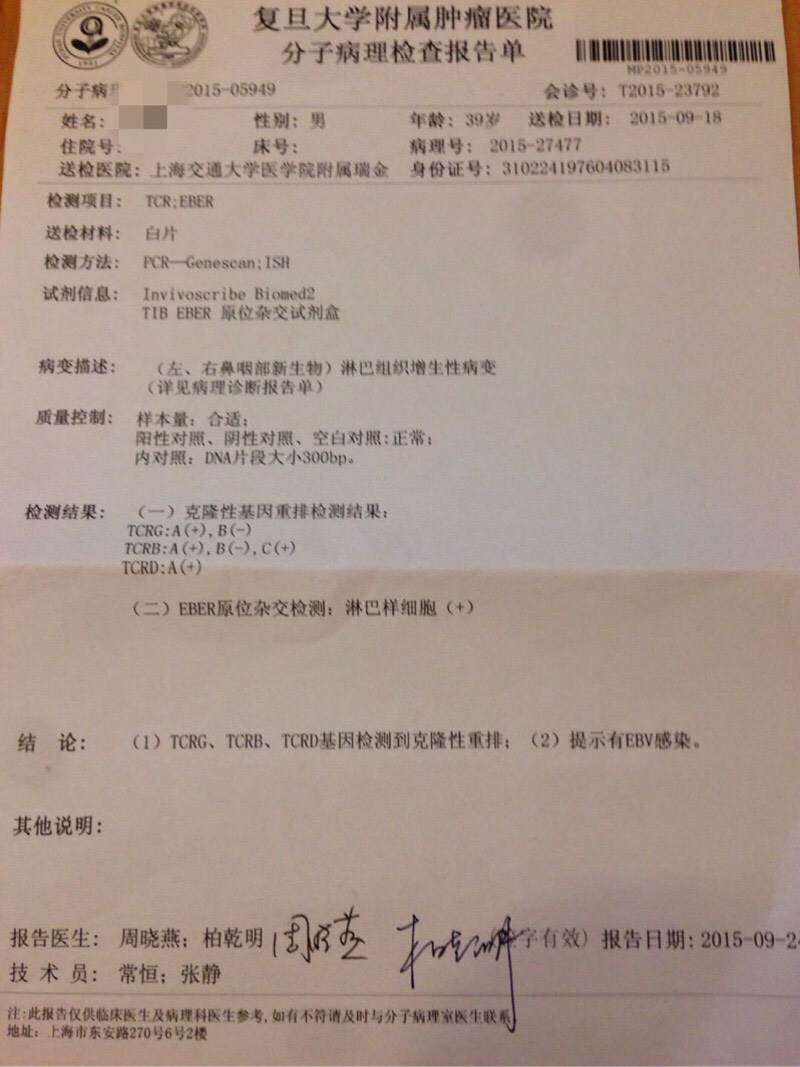 复旦大学附属肿瘤医院
分子病理检查报告单
MP2015-05949
分子病 2015-05949 会诊号: T2015-23792
姓名: 性别: 男 年龄: 39岁 送检日期: 2015-09-18
住院号: 床号: 病理号: 2015-27477
送检医院: 上海交通大学医学院附属瑞金 身份证号: 310224197604083115
检测项目: TCR;EBER
送检材料: 白片
检测方法: PCR—Genescan;ISH
试剂信息: Invivoscribe Biomed2
TIB EBER 原位杂交试剂盒
病变描述: (左、右鼻咽部新生物)淋巴组织增生性病变
(详见病理诊断报告单)
质量控制: 样本量: 合适;
阳性对照、阴性对照、空白对照:正常;
内对照: DNA片段大小300bp。
检测结果: (一)克隆性基因重排检测结果:
TCRG:A(+),B(-)
TCRB:A(+),B(-),C(+)
TCRD:A(+)
(二)EBER原位杂交检测: 淋巴样细胞(+)
结 论: (1)TCRG、TCRB、TCRD基因检测到克隆性重排; (2)提示有EBV感染。
其他说明:
报告医生: 周晓燕; 柏乾明 周晓燕 柏乾明 字有效) 报告日期: 2015-09-24
技 术 员: 常恒; 张静
注:此报告仅供临床医生及病理科医生参考,如有不符请及时与分子病理室医生联系
地址: 上海市东安路270号6号2楼